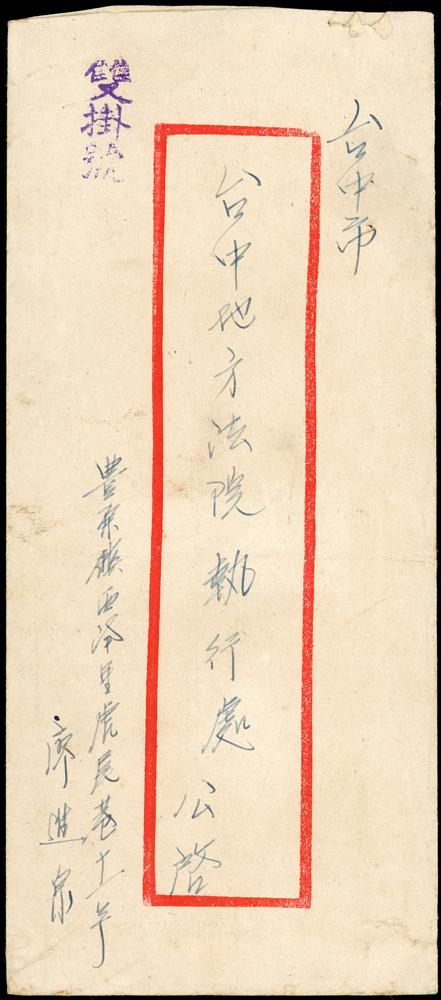 台中市
台中地方法院執行處 公啓
豊原鎮西湳里虎尾巷十一号
廖進宗
雙掛號